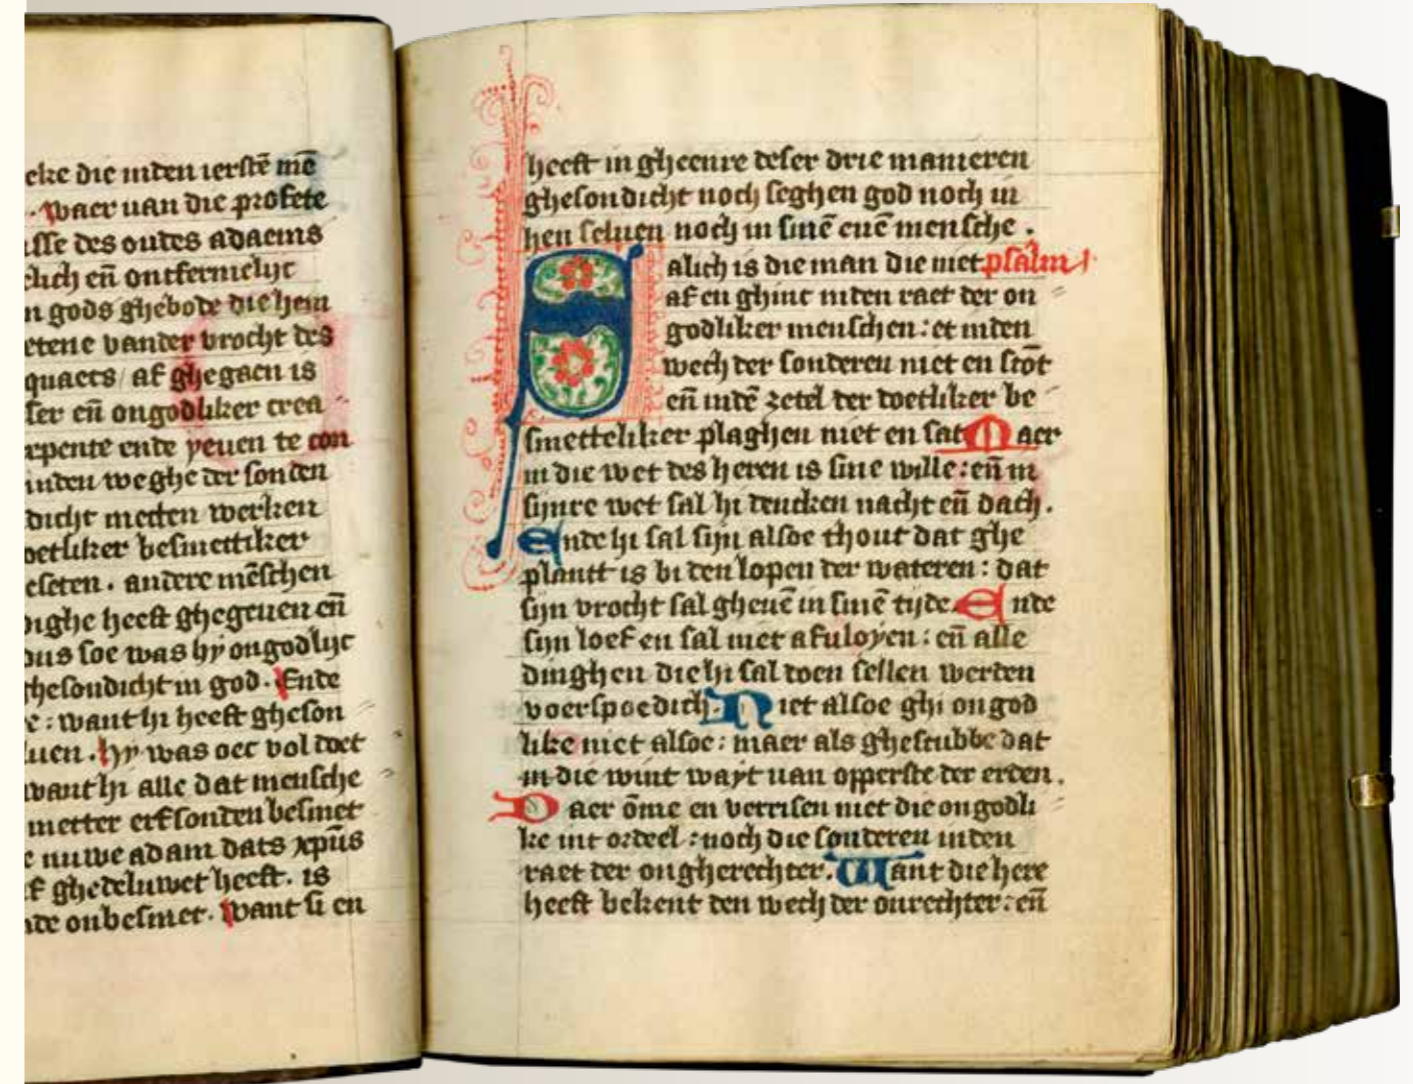 eke die inden ierstē mē
. waer uan die profete
sse des oudes adaems
elich eñ ontfermelijc
n gods ghebode die hem
etene vander vrocht des
quaets / af ghegaen is
ser eñ ongodliker crea
rpente ende yeuen te con
inden weghe der sonden
dicht metten werken
oetliker besmettiker
eseten. andere mēschen
ighe heeft ghegeuen eñ
dus soe was hy ongodlijc
ghesondicht in god. Ende
e: want hi heeft gheson
luen. hy was oec vol doet
want hi alle dat mensche
metter erfsonden besmet
e nuwe adam dats xpūs
f ghedeluwet heeft. is
de onbesmet. want si en
heeft in gheenre deser drie manieren
ghesondicht noch seghen god noch in
hen seluen noch in sinē euē mensche.
Salich is die man die niet psalm
af en ghinc inden raet der on
godliker menschen: et inden
wech der sonderen niet en stōt
eñ indē zetel der doetliker be
smetteliker plaghen niet en sat Maer
in die wet des heren is sine wille: eñ in
sijnre wet sal hi dencken nacht eñ dach.
Ende hi sal sijn alsoe thout dat ghe
plantt is bi den lopen der wateren: dat
sijn vrocht sal gheuē in sinē tijde. Ende
sijn loef en sal niet afuloyen: eñ alle
dinghen die hi sal doen sellen werden
voerspoedich. Niet alsoe ghi ongod
like niet alsoe: maer als ghestubbe dat
in die wint wayt uan opperste der erden.
Daer ōme en verrisen niet die ongodli
ke int ordeel: noch die sonderen inden
raet der ongherechter. Want die here
heeft bekent den wech der onrechter: eñ